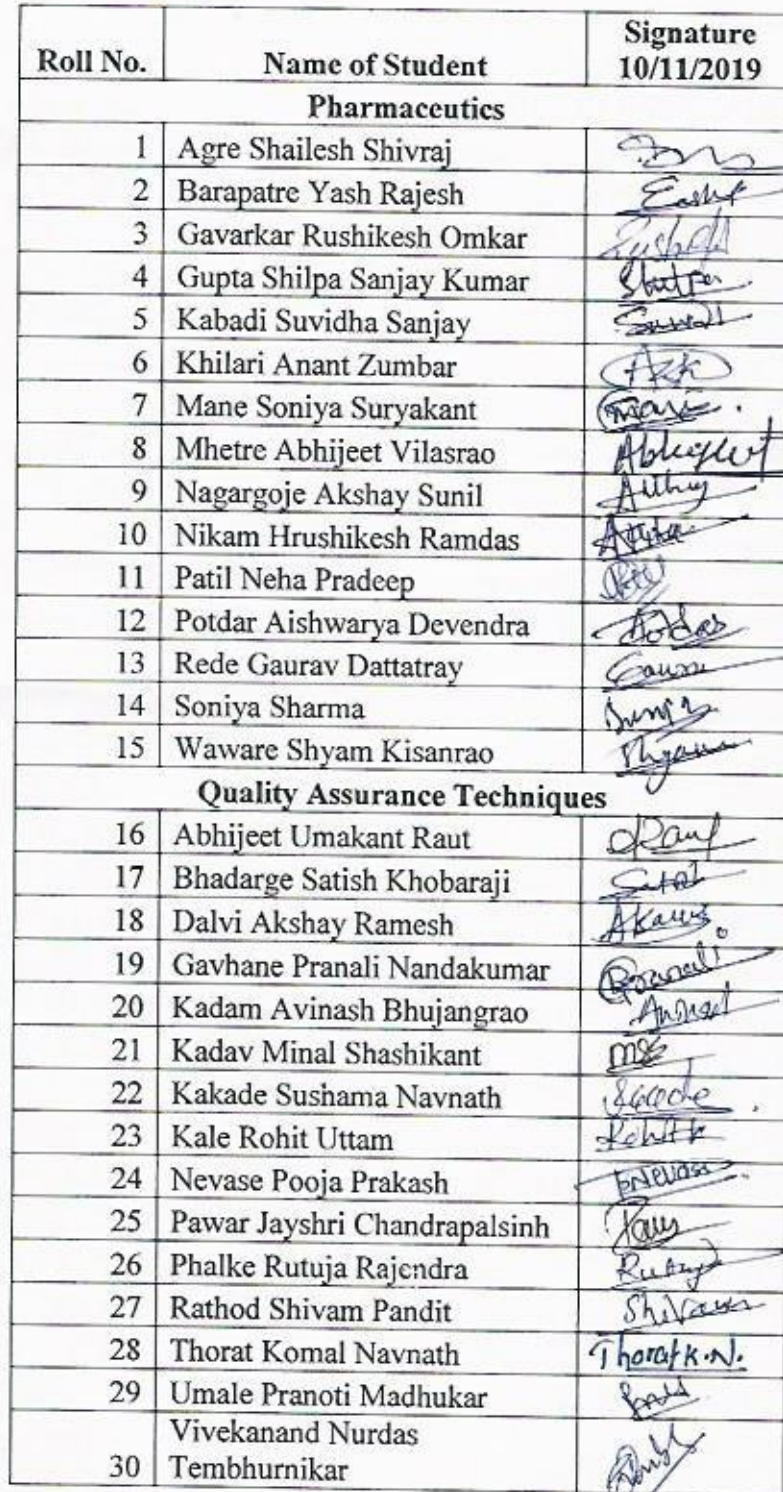 Roll No. Name of Student Signature 10/11/2019
Pharmaceutics
1 Agre Shailesh Shivraj
2 Barapatre Yash Rajesh
3 Gavarkar Rushikesh Omkar
4 Gupta Shilpa Sanjay Kumar
5 Kabadi Suvidha Sanjay
6 Khilari Anant Zumbar
7 Mane Soniya Suryakant
8 Mhetre Abhijeet Vilasrao
9 Nagargoje Akshay Sunil
10 Nikam Hrushikesh Ramdas
11 Patil Neha Pradeep
12 Potdar Aishwarya Devendra
13 Rede Gaurav Dattatray
14 Soniya Sharma
15 Waware Shyam Kisanrao
Quality Assurance Techniques
16 Abhijeet Umakant Raut
17 Bhadarge Satish Khobaraji
18 Dalvi Akshay Ramesh
19 Gavhane Pranali Nandakumar Pranali
20 Kadam Avinash Bhujangrao
21 Kadav Minal Shashikant
22 Kakade Sushama Navnath
23 Kale Rohit Uttam
24 Nevase Pooja Prakash
25 Pawar Jayshri Chandrapalsinh
26 Phalke Rutuja Rajendra
27 Rathod Shivam Pandit Shivam
28 Thorat Komal Navnath Thorat K.N.
29 Umale Pranoti Madhukar
Vivekanand Nurdas
30 Tembhurnikar